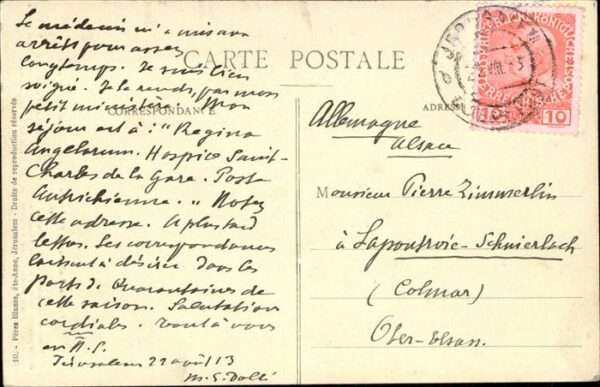 CARTE POSTALE
CORRESPONDANCE
Le médecin m'a mis aux
arrêts pour assez
longtemps. Je suis bien
soigné. Je le rends, par mon
petit ministère. Mon
séjour est à : "Regina
Angelorum. Hospice Saint-
Charles de la Gare. Poste
Autrichienne." Notez
cette adresse. A plus tard
lettre. Les correspondances
laissent à désirer dans les
ports de Quarantaines de
cette saison. Salutations
cordiales. Tout à vous
en N.S.
Jérusalem 22 août 13
ADRES
Allemagne
Alsace
Monsieur Pierre Zimmerlin
à Lapoutroie-Schnierlach
(Colmar)
Ober-Elsass.
10
10. - Pères Blancs, Ste-Anne, Jérusalem - Droits de reproduction réservés